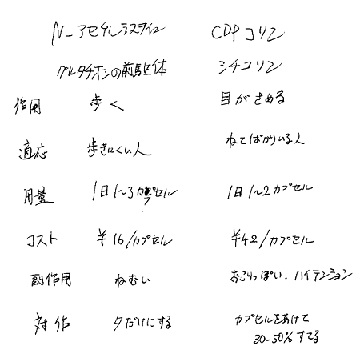 N-アセチルシステイン CDPコリン
グルタチオンの前駆体 シチコリン
作用 歩く 目がさめる
適応 歩きにくい人 ねてばかりいる人
用量 1日1~3カプセル 1日1~2カプセル
コスト ¥16/カプセル ¥42/カプセル
副作用 ねむい おこりっぽい、ハイテンション
対 夕だけにする カプセルをあけて
30-50%すてる